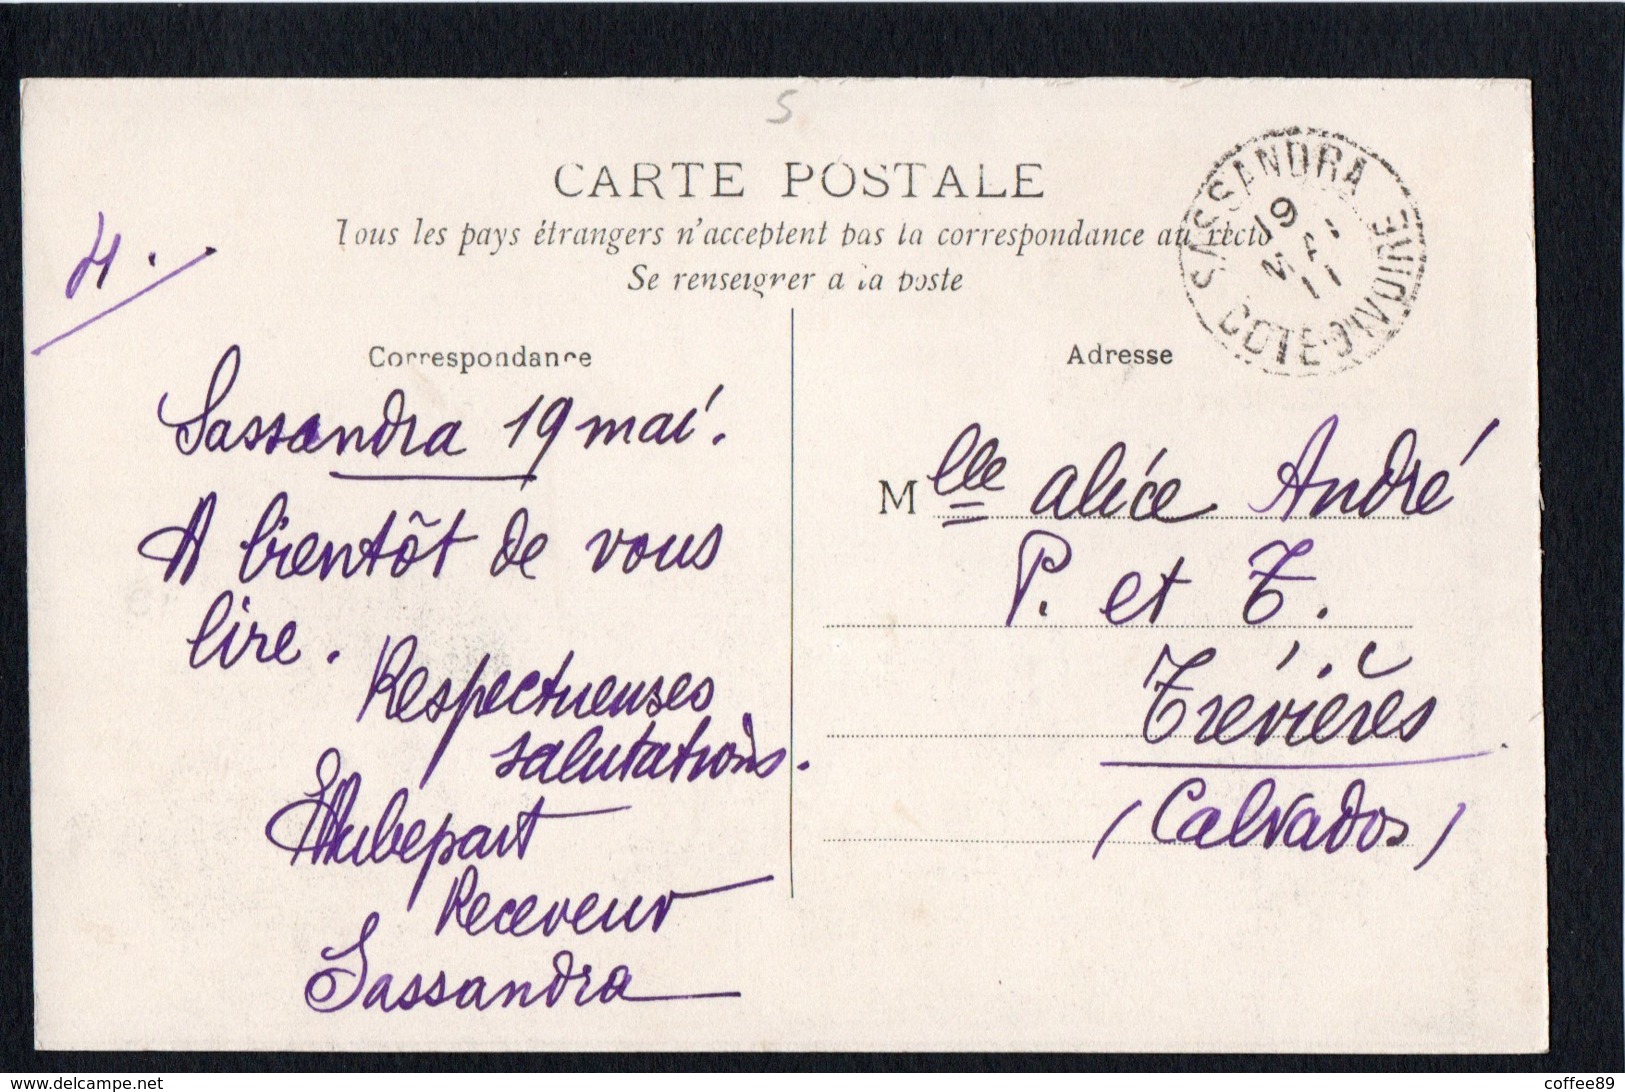 5
CARTE POSTALE
Tous les pays étrangers n'acceptent pas la correspondance au recto
Se renseigner a la poste
SASSANDRA
19
11
COTE-D'IVOIRE
4.
Correspondance
Sassandra 19 mai.
A bientôt de vous
lire.
Respectueuses
salutations.
Receveur
Sassandra
Adresse
Mlle alice André
P. et T.
Trévières
(Calvados)
delcampe.net
coffee89